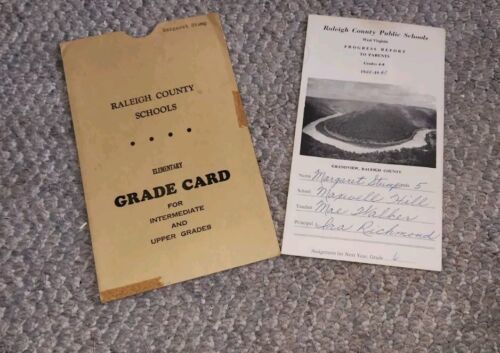 Margaret Stump
RALEIGH COUNTY
SCHOOLS
• • • •
ELEMENTARY
GRADE CARD
FOR
INTERMEDIATE
AND
UPPER GRADES
Raleigh County Public Schools
West Virginia
PROGRESS REPORT
TO PARENTS
Grades 4-6
GRANDVIEW, RALEIGH COUNTY
Name Margaret Stump 5
School Maxwell Hill
Teacher Mae Walker
Principal Ira Richmond
Assignment for Next Year, Grade 6